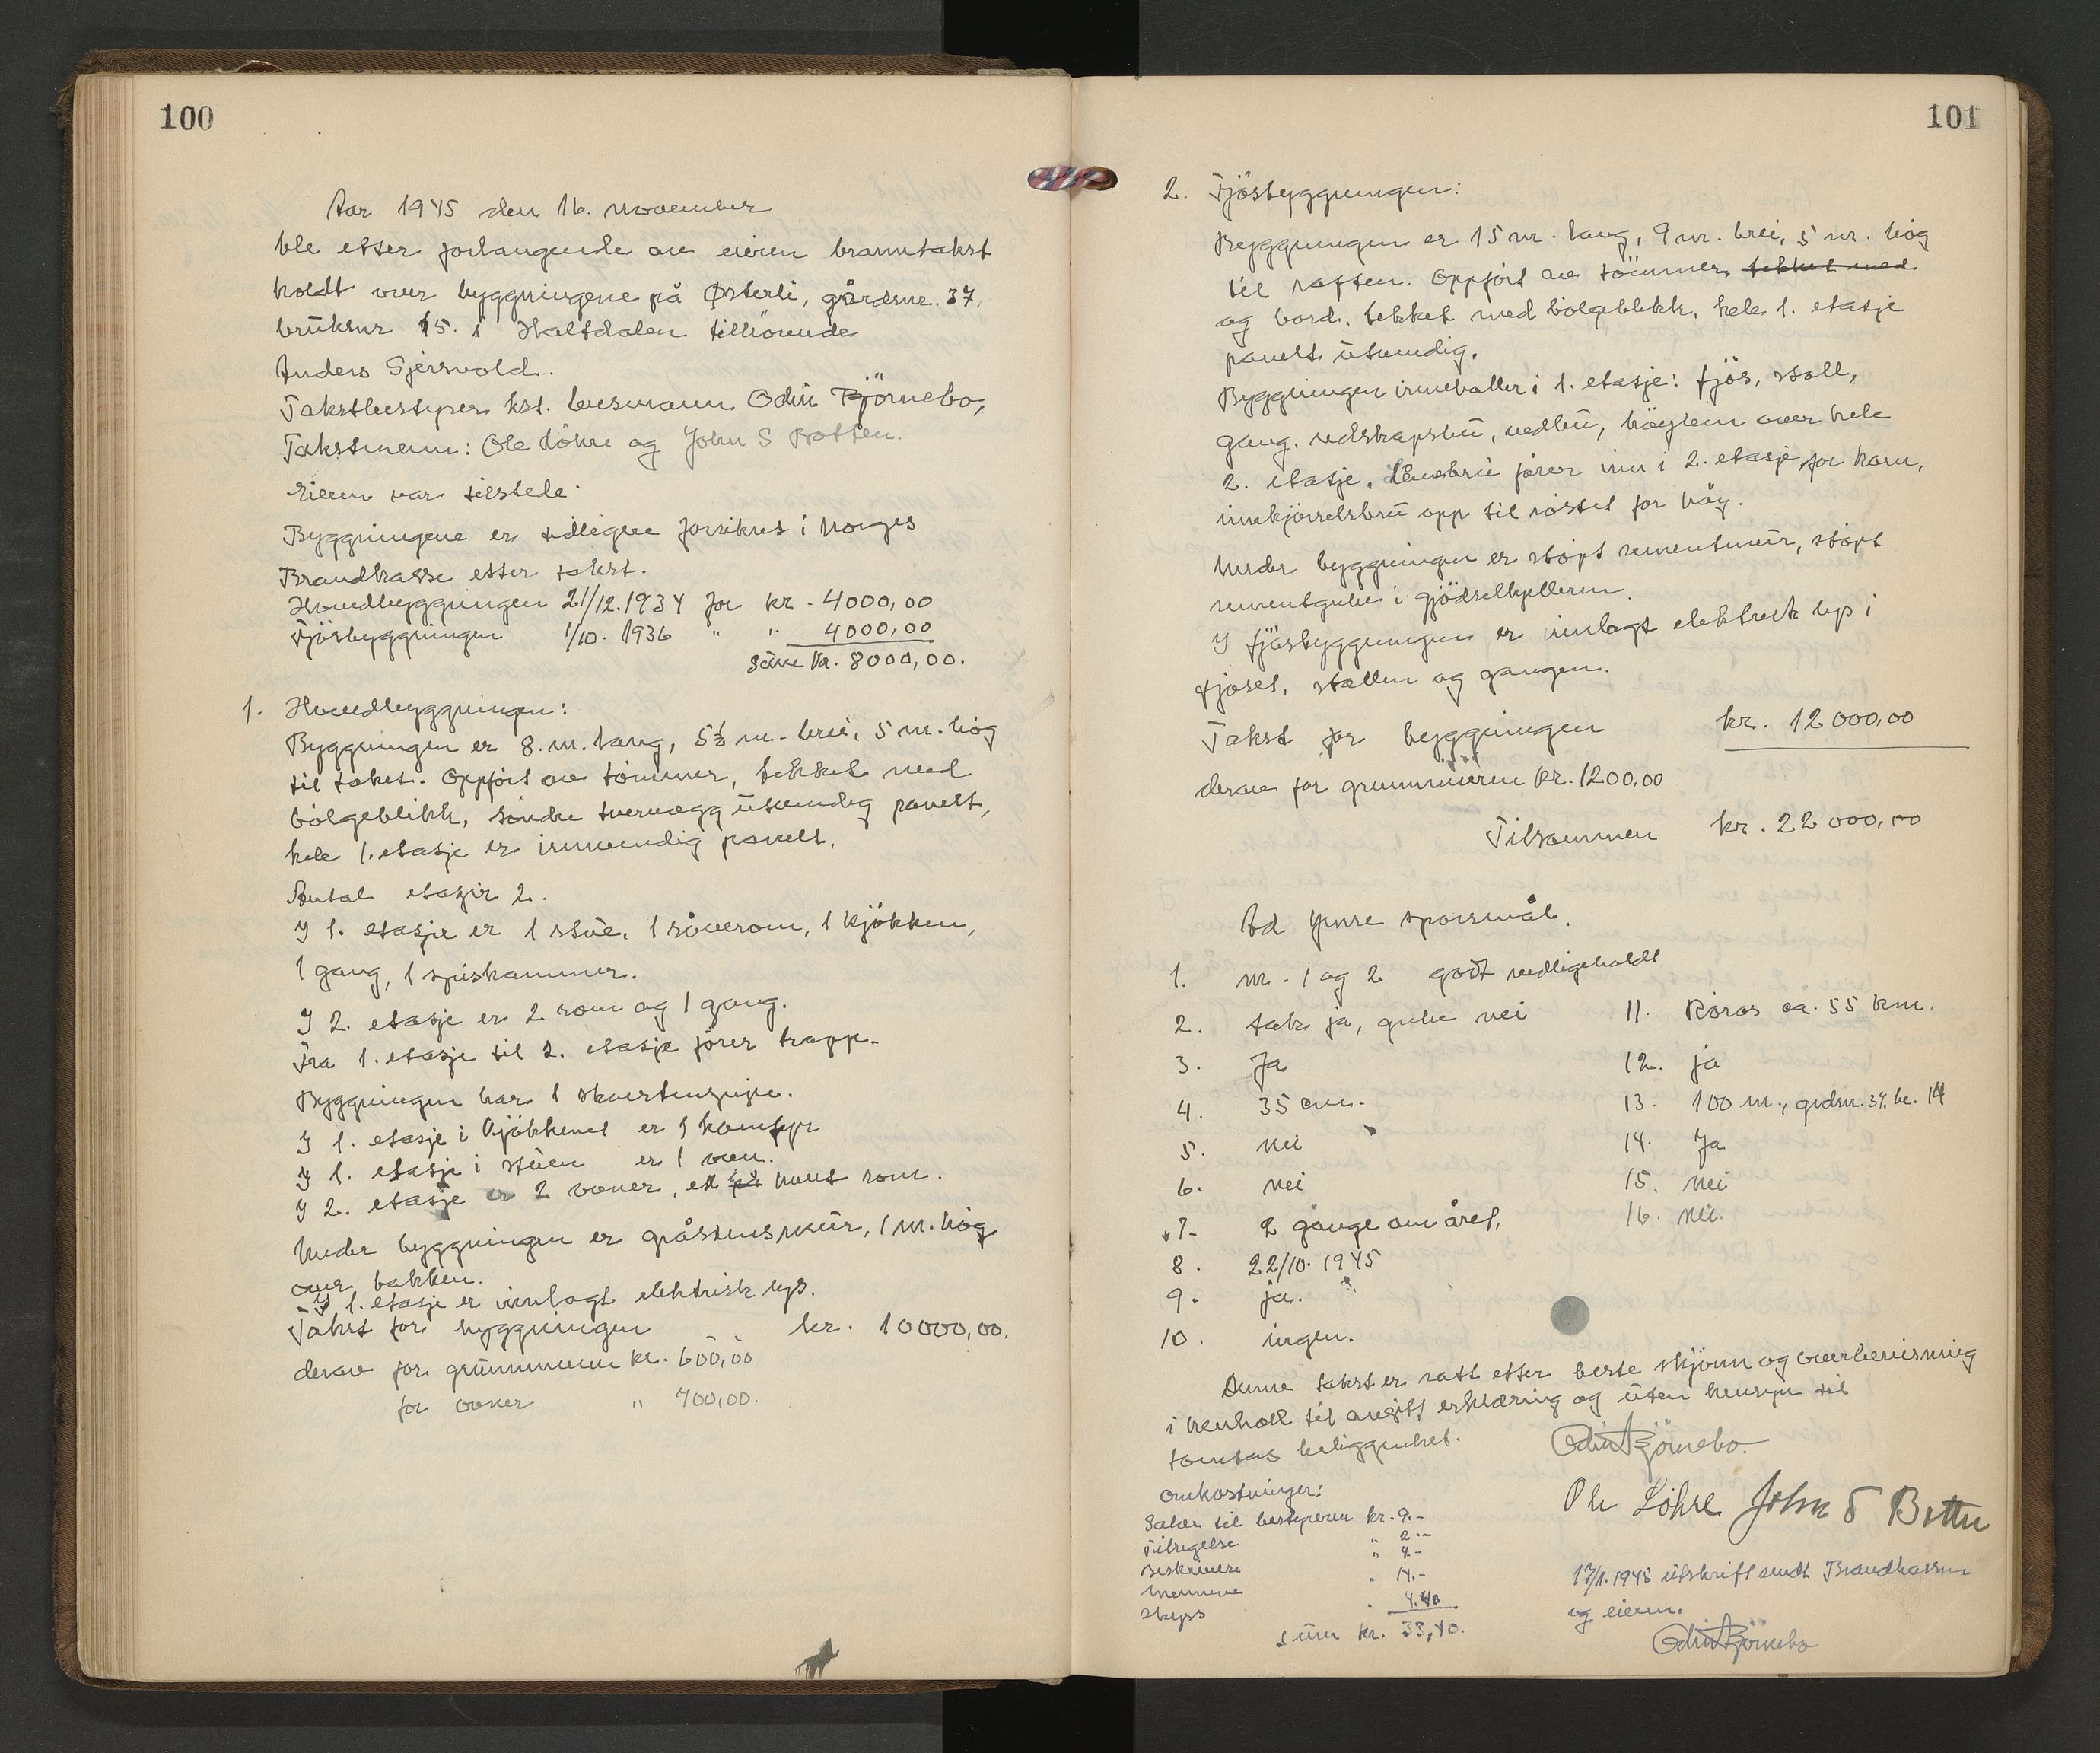 100
Aar 1945 den 16. november
ble etter forlangende av eieren branntakst
holdt over byggningene på Østerli, gårdsnr. 37,
bruksnr 15. i Haltdalen tilhörende
Anders Gjersvold.
Takstbestyrer kst. lensmann Odin Bjørnebo,
Takstmenn: Ole Löhre og John S Botten.
Eieren var tilstede.
Byggningene er tidligere forsikret i Norges
Brandkasse etter takst.
Hovedbyggningen 21/12.1934 for kr. 4000,00
Fjösbyggningen 1/10. 1936 " " 4000,00
Sum kr. 8000,00.
1. Hovedbyggningen:
Byggningen er 8. m. lang, 5½ m. brei, 5 m. høg
til taket. Oppfört av tömmer, tekket med
bölgeblikk, söndre tvervegg utvendig panelt,
hele 1. etasje er innvendig panelt.
Antal etasjer 2.
I 1. etasje er 1 stue, 1 såverom, 1 kjökken,
1 gang, 1 spiskammer.
I 2. etasje er 2 rom og 1 gang.
Fra 1. etasje til 2. etasje förer trapp.
Byggningen har 1 skorstenspipe.
I 1. etasje i kjökkenet er 1 komfyr
I 1. etasje i stuen er 1 ovn.
I 2. etasje er 2 ovner, ett på hvert rom.
Under byggningen er gråstensmur, 1 m. høg
over bakken.
I 1. etasje er innlagt elektrisk lys.
Takst for byggningen kr. 10000,00.
derav for grunnmuren kr. 600,00
for ovner " 700,00.
101
2. Fjösbyggningen:
Byggningen er 15 m. lang, 9 m. brei, 5 m. høg
til raften. Oppfört av tömmer, tekket med
og bord, tekket med bölgeblikk, hele 1. etasje
panelt utvendig.
Byggningen inneholler i 1. etasje: fjös, stall,
gang, redskapsbu, vedbu, höylem over hele
2. etasje. Låvebru förer inn i 2. etasje for korn,
innkjörselsbru opp til röstet for höy.
Under byggningen er stöpt sementmur, stöpt
sementgulv i gjödselkjelleren.
I fjösbyggningen er innlagt elektrisk lys i
fjöset, stallen og gangen.
Takst for byggningen kr. 12000,00
derav for grunnmuren kr. 1200,00
Tilsammen kr. 22000,00
Ad ymse spörsmål.
1. nr. 1 og 2 godt vedligeholdt
2. tak ja, gulv nei
3. Ja
4. 35 cm.
5. nei
6. nei
7. 2 gange om året,
8. 22/10. 1945
9. ja.
10. ingen.
11. Röros ca. 55 km.
12. ja
13. 100 m., grdsnr. 37, br. 14
14. Ja
15. nei
16. nei.
Denne takst er satt etter beste skjönn og overbevisning
i henholl til avgitt erklæring og uten hensyn til
tomtas beliggenhet.
Odin Bjørnebo.
Ole Löhre John S Botten
Omkostninger:
Salær til bestyreren kr. 9.-
Tilsigelse " 2.-
Beskrivelse " 4.-
Mennene " 14.-
Skyss " 4.40
Sum kr. 33,40.
17/11.1945 utskrift sendt Brandkassen
og eieren.
Odin Bjørnebo